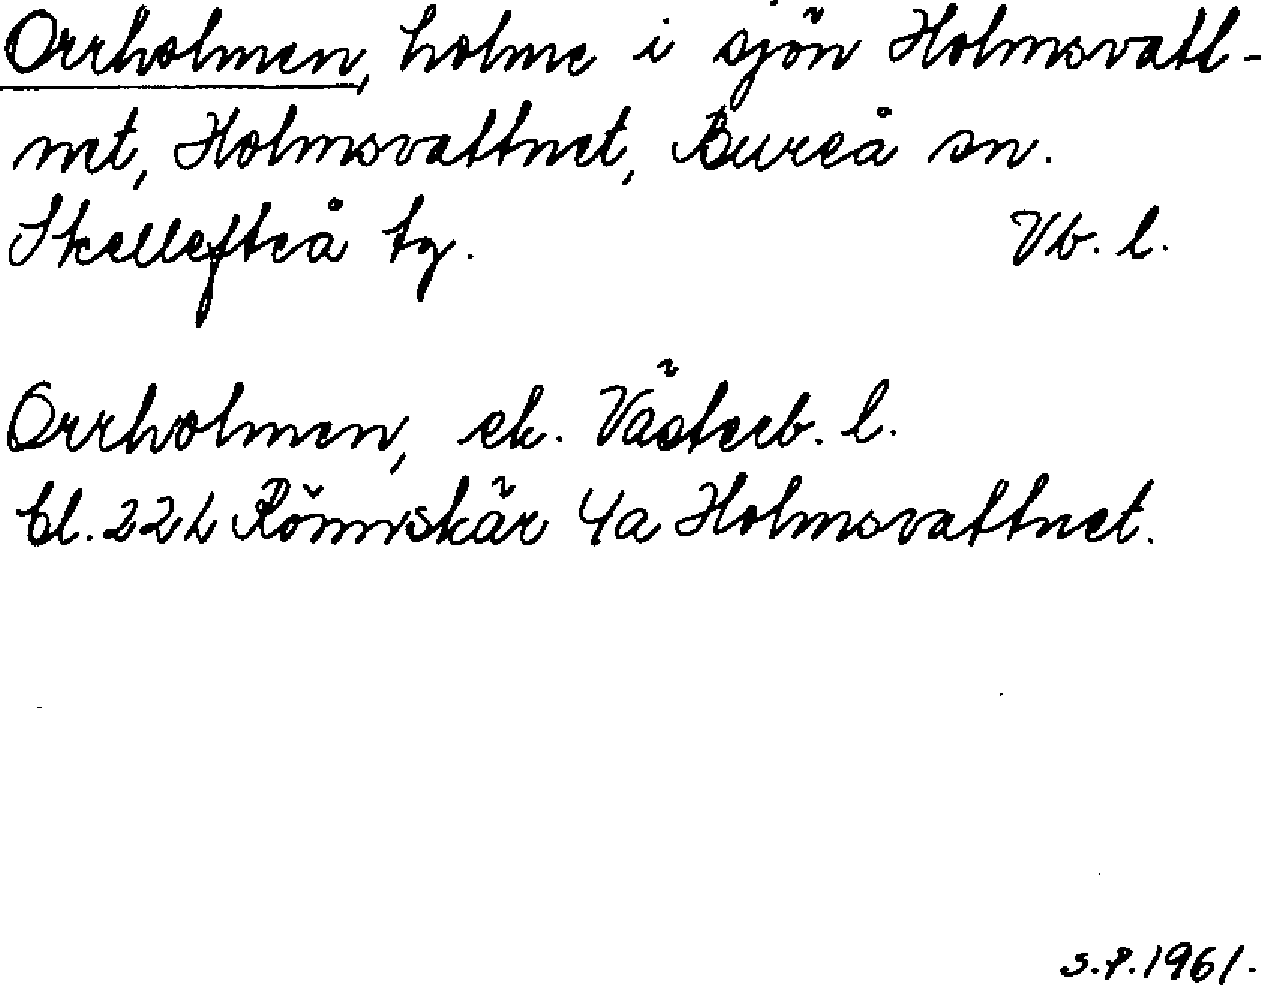 Orrholmen, holme i sjön Holmsvatt-
net, Holmsvattnet, Bureå sn.
Skellefteå tg. Vb. l.
Orrholmen, ek. Västerb. l.
bl. 22 L Rönnskär 4a Holmsvattnet.
S.P. 1961.